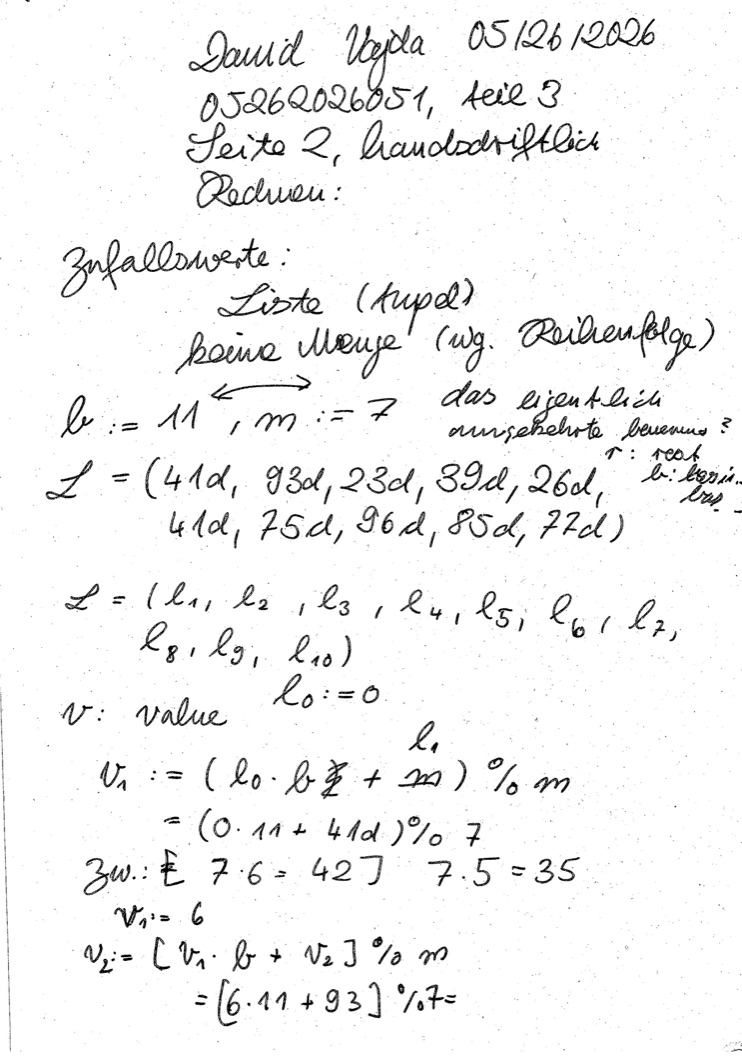 David Vajda 05/26/2026
05262026051, teil 3
Seite 2, handschriftlich
Rechnen:
Zufallswerte:
Liste (Tupel)
keine Menge (wg. Reihenfolge)
b := 11 , m := 7 das eigentlich
umgekehrte ?
r : rest
b:
L = (41d, 93d, 23d, 39d, 26d,
41d, 75d, 96d, 85d, 77d)
L = (l₁, l₂ , l₃ , l₄, l₅, l₆, l₇,
l₈, l₉, l₁₀)
l₀ := 0
v: value
l₁
v₁ := (l₀ · b + m) % m
= (0 · 11 + 41d) % 7
Zw.: [ 7·6 = 42] 7·5 = 35
v₁ := 6
v₂ := [v₁ · b + v₂] % m
= [6·11 + 93] %7=